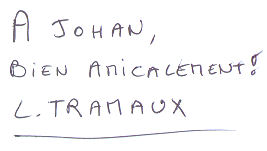 A JOHAN,
BIEN AMICALEMENT!
L. TRAMAUX